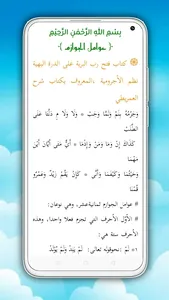 بِسْمِ اللَّهِ الرَّحْمَنِ الرَّحِيْمِ
-{ عوامل الجوازم }-
* كتاب فتح رب البرية على الدرة البهية
نظم الأجرومية ،المعروف بكتاب شرح
العمريطي
وَجَزْمُهُ بِلَمْ وَلَمَّا وَجَبْ * وَلَا وَلَامٍ دَلَّتَا عَلَى
الطَّلَبْ
كَذَاكَ إِنْ وَمَا وَمَنْ وَإِذْمَا * أَيٌّ مَتَى أَيَّانَ أَيْنَ
مَهْمَا
وَحَيْثُمَا وَكَيْفَمَا وَأَنَّى * كَإِنْ يَقُمْ زَيْدٌ وَعَمْرٌو
قُمْنَا
# عوامل الجوازم ثمانية عشر، وهي نوعان:
# الأوّل الأحرف التي تجزم فعلا واحدا، وهذه
الأحرف ستة هي:
١* لَمْ :نحوقوله تعالى: لَمْ يَلِدْ وَلَمْ يُوْلَدْ